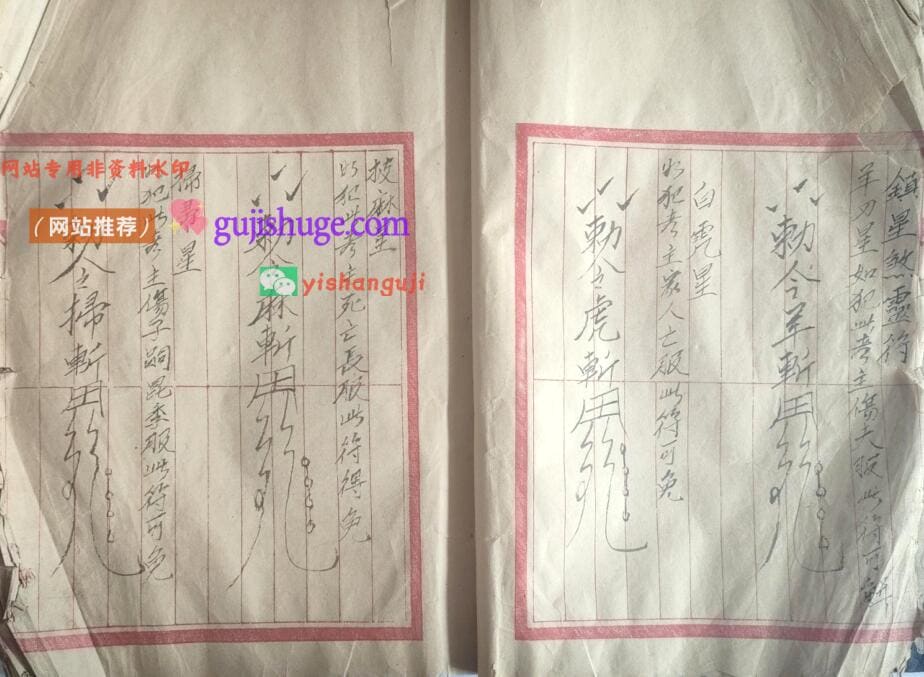 鎮星煞靈符
羊刃星如犯此者主傷夫服此符可解
敕令羊斬
白虎星
如犯者主家人亡服此符可免
敕令虎斬
披麻星
如犯此者主死亡長服此符得免
敕令麻斬
掃星
犯此者主傷子嗣昆季服此符可免
敕令掃斬
网站专用非资料水印
（网站推荐）
gujishuge.com
yishanguji